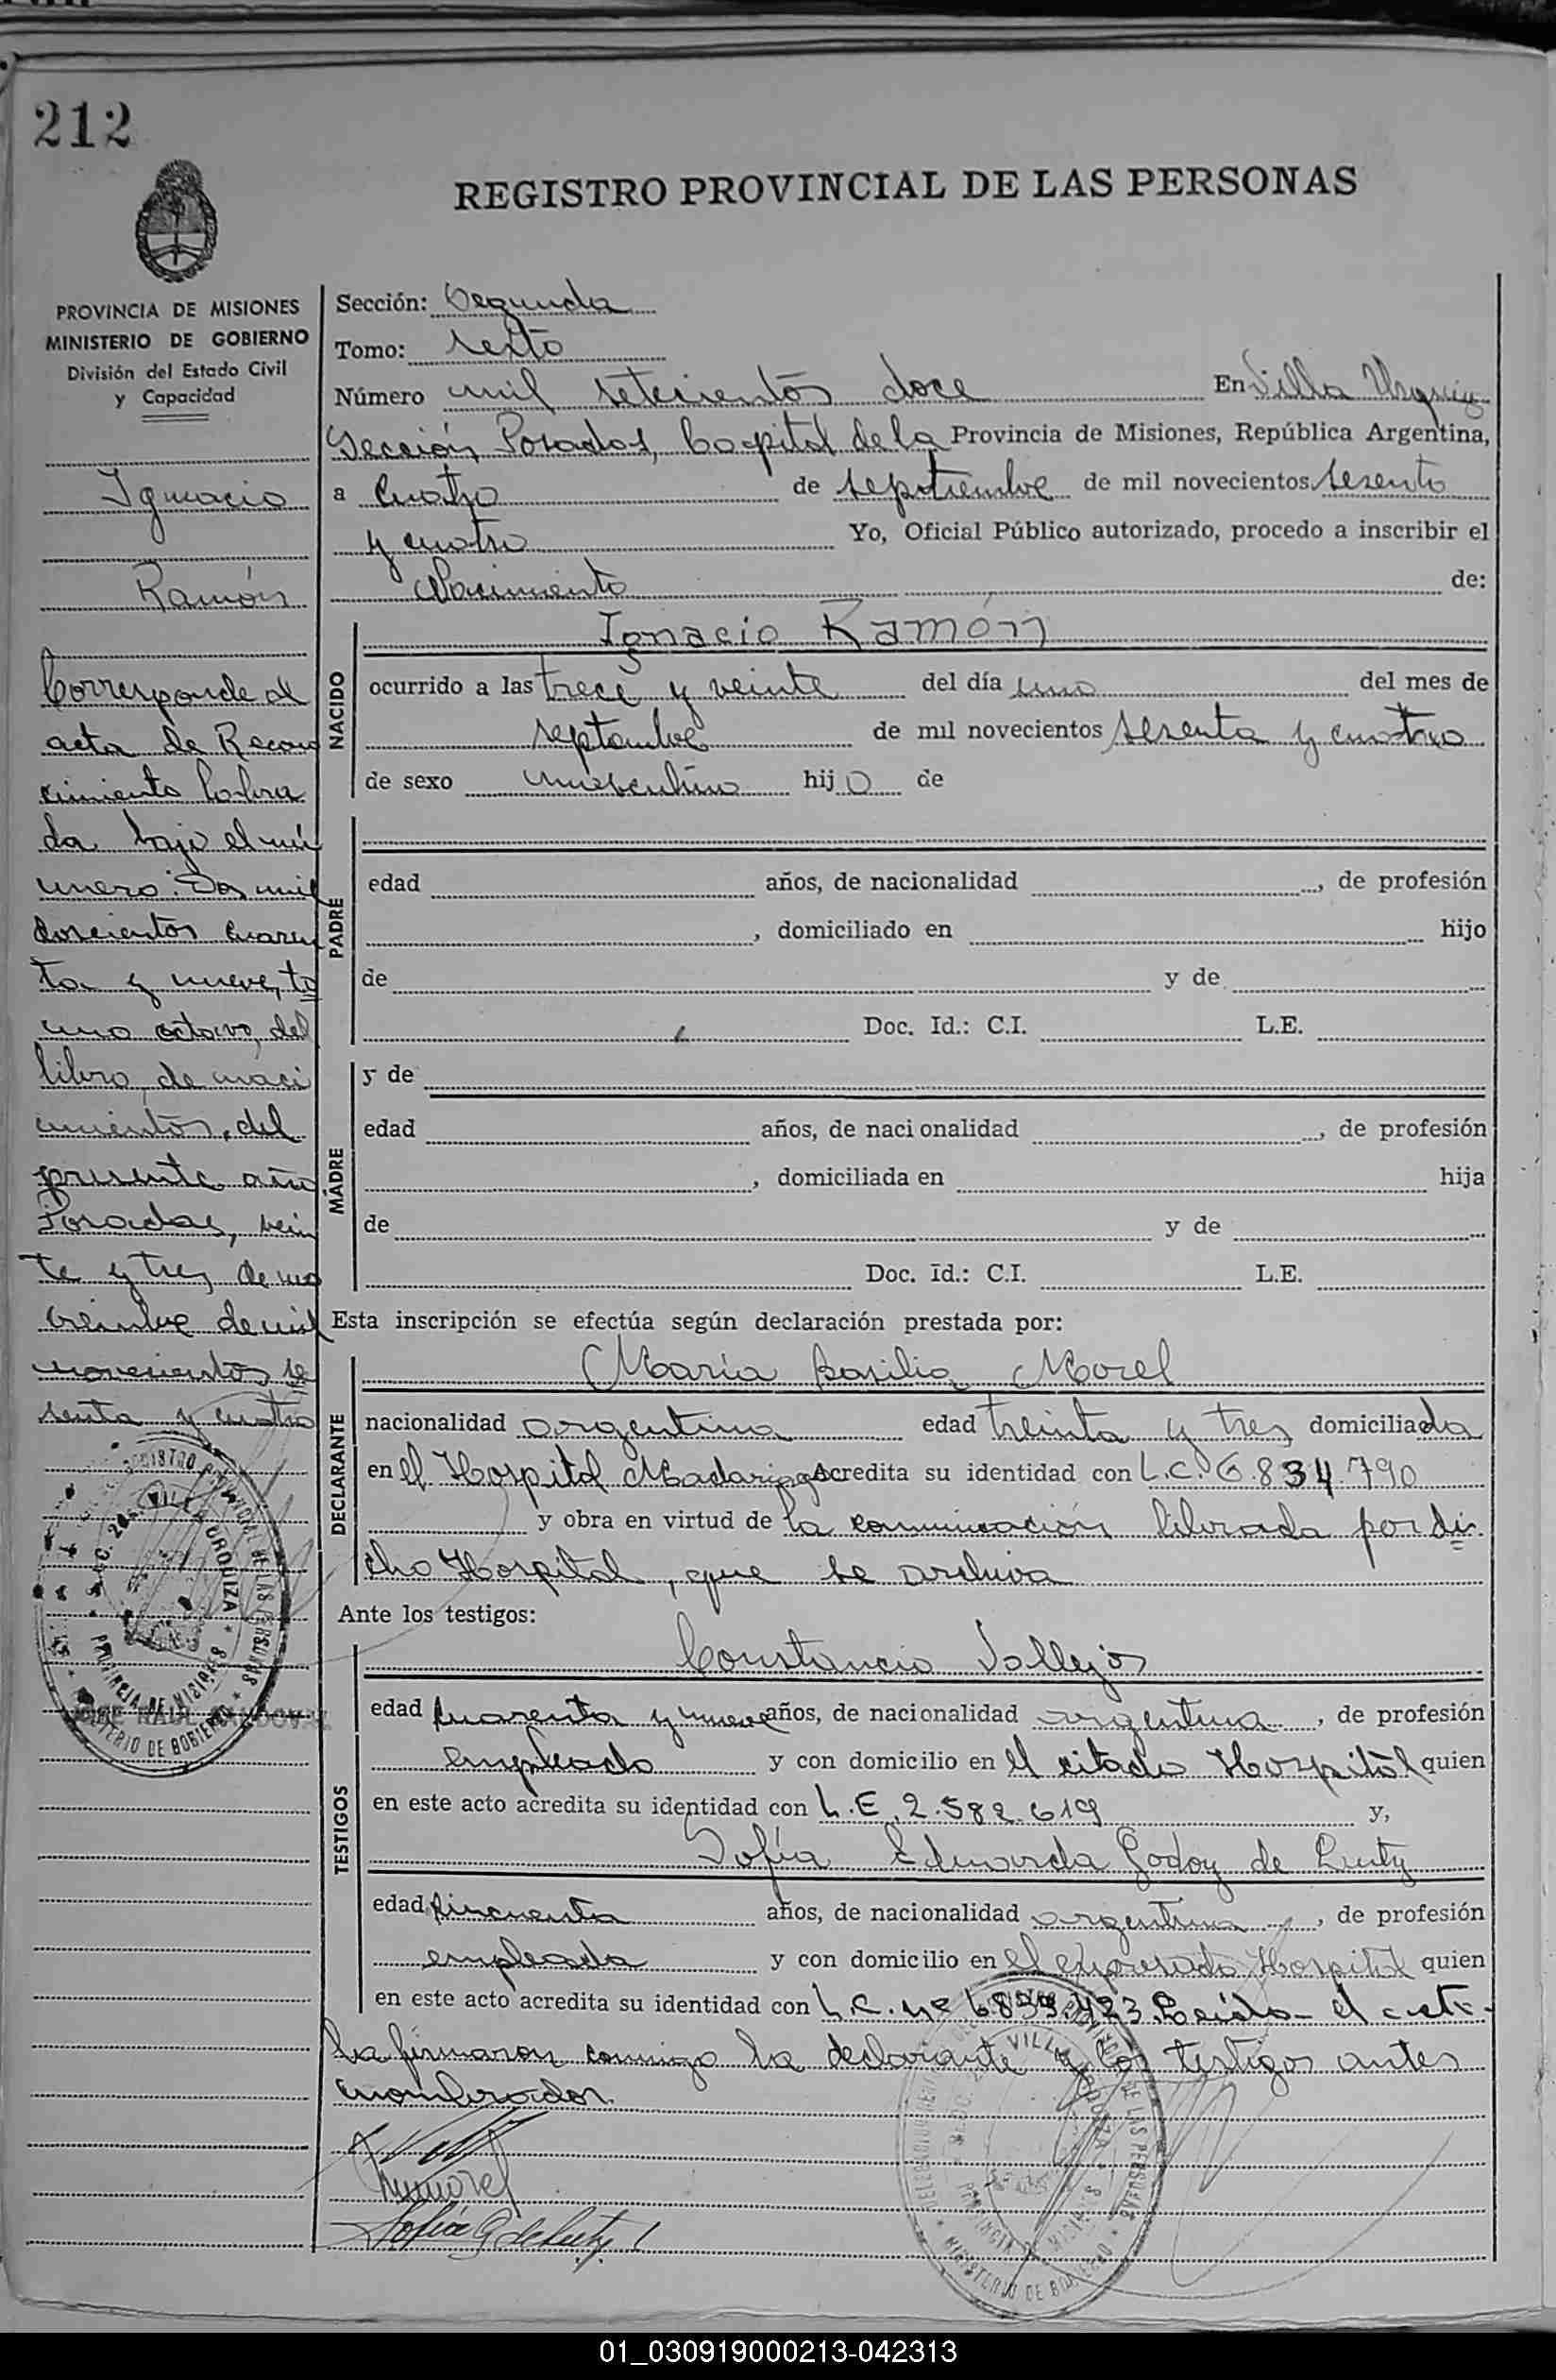 212
REGISTRO PROVINCIAL DE LAS PERSONAS
PROVINCIA DE MISIONES
MINISTERIO DE GOBIERNO
División del Estado Civil
y Capacidad
Ignacio
Ramón
Corresponde al
acta de Recono
cimiento labra
da bajo el nú
mero: Dos mil
doscientos cuaren
ta y nueve, to
mo octavo, del
libro de naci
mientos, del
presente año
Posadas, vein
te y tres de no
viembre de mil
novecientos se
senta y cuatro
REGISTRO PROVINCIAL DE LAS PERSONAS
VILLA URQUIZA
PROVINCIA DE MISIONES
MINISTERIO DE GOBIERNO
JOSE RAUL SANDOVAL
Sección: Segunda
Tomo: sexto
Número mil setecientos doce En Villa Urquiza
Sección Posadas, Capital de la Provincia de Misiones, República Argentina,
a cuatro de septiembre de mil novecientos sesenta
y cuatro Yo, Oficial Público autorizado, procedo a inscribir el
Nacimiento de:
NACIDO
Ignacio Ramón
ocurrido a las trece y veinte del día uno del mes de
septiembre de mil novecientos sesenta y cuatro
de sexo masculino hijo de
PADRE
edad años, de nacionalidad , de profesión
, domiciliado en hijo
de y de
Doc. Id.: C.I. L.E.
MADRE
y de
edad años, de naci onalidad , de profesión
, domiciliada en hija
de y de
Doc. Id.: C.I. L.E.
Esta inscripción se efectúa según declaración prestada por:
DECLARANTE
María Basilia Morel
nacionalidad argentina edad treinta y tres domiciliada
en el Hospital Madariaga acredita su identidad con L.C. 6.834.790
y obra en virtud de la comunicación librada por di
cho Hospital, que se archiva
Ante los testigos:
TESTIGOS
Constancio Vallejos
edad cuarenta y nueve años, de nacionalidad argentina, de profesión
empleado y con domicilio en el citado Hospital quien
en este acto acredita su identidad con L.E. 2.582.619 y,
Sofía Eduarda Godoy de
edad cincuenta años, de nacionalidad argentina, de profesión
empleada y con domicilio en el expresado Hospital quien
en este acto acredita su identidad con L.C. nº 6833.423. Leída el acta
la firmaron conmigo la declarante y los testigos antes
nombrados.
Morel
Sofía G de
VILLA URQUIZA
PROVINCIA DE MISIONES
MINISTERIO DE GOBIERNO
01_030919000213-042313